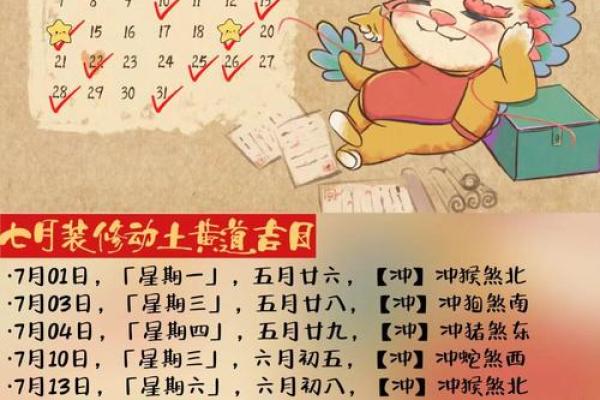 7 8 9 10 11 12 13
15 16 17 18 20
21 22 23 24 25 26 27
28 29 30 31
七月装修动土黄道吉日
·7月01日，「星期一」，五月廿六，【冲】冲猴煞北
·7月03日，「星期三」，五月廿八，【冲】冲狗煞南
·7月04日，「星期四」，五月廿九，【冲】冲猪煞东
·7月10日，「星期三」，六月初五，【冲】冲蛇煞西
·7月13日，「星期六」，六月初八，【冲】冲猴煞北